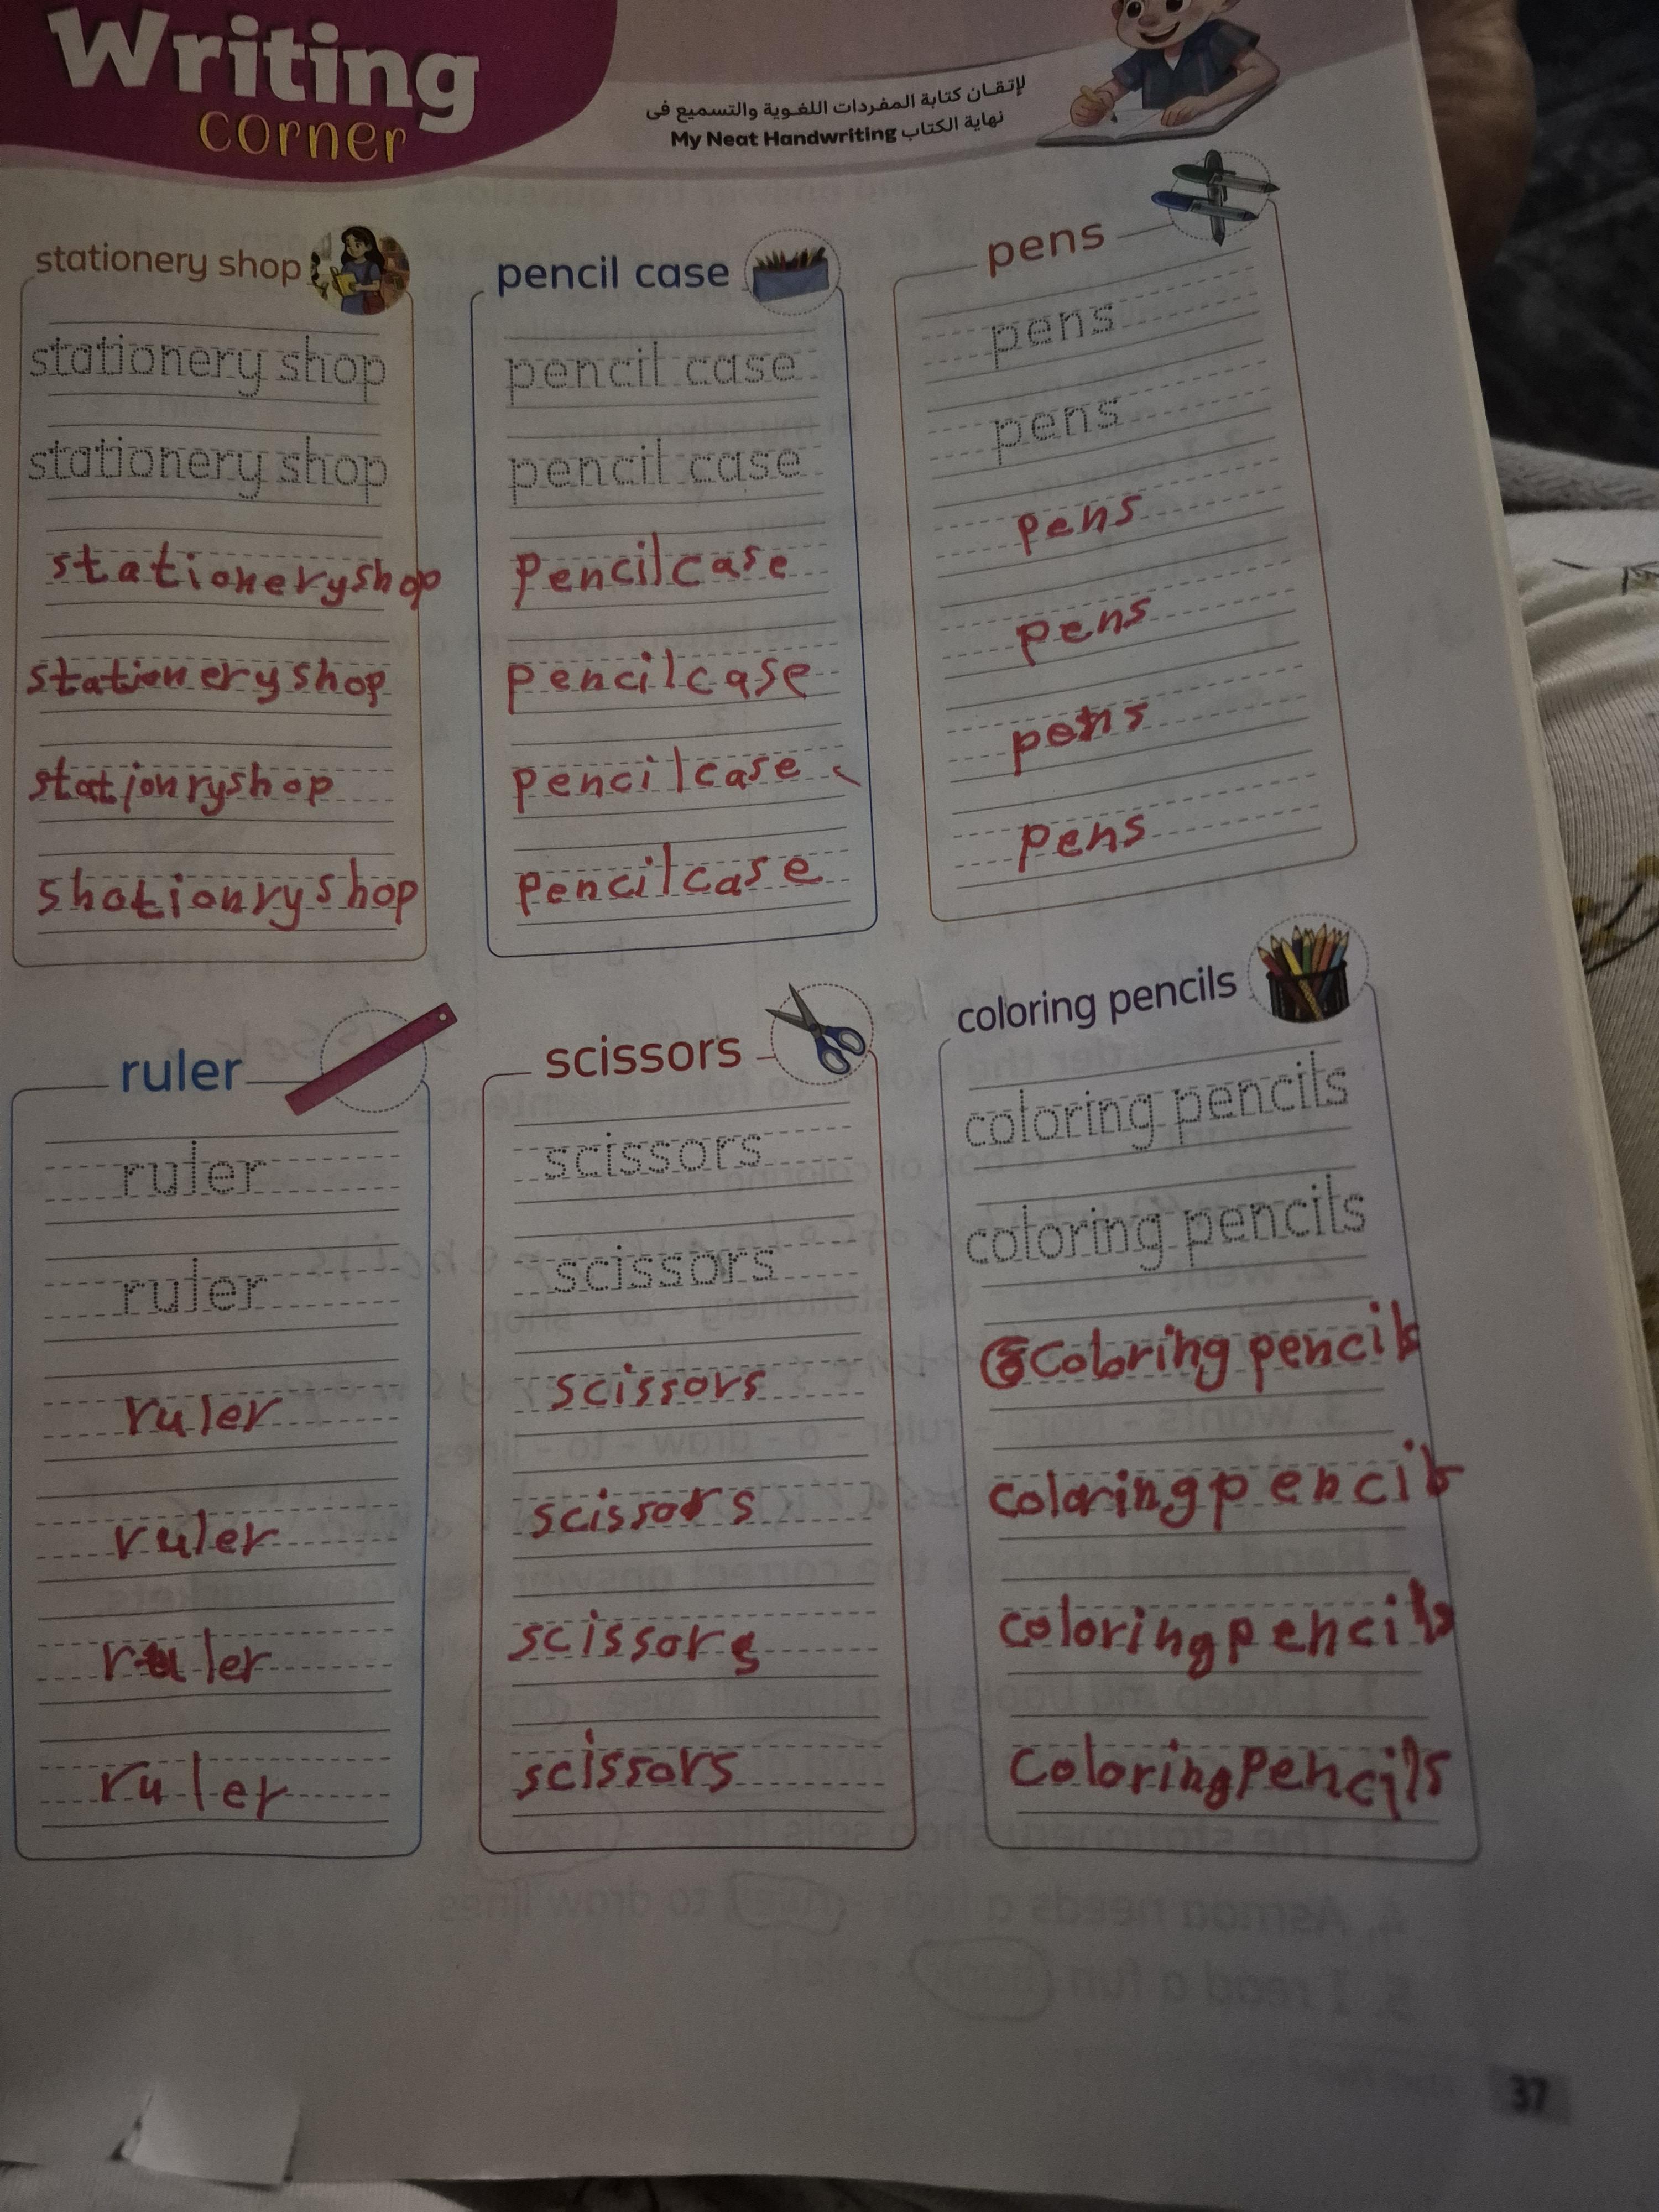 Writing
corner
لإتقـان كتابة المفـردات اللغـوية والتسميع فى
نهاية الكتاب My Neat Handwriting
stationery shop
stationery shop
stationery shop
stationeryshop
stationery shop
stationryshop
shationryshop
pencil case
pencil case
pencil case
pencilcase
pencilcase
pencilcase
pencilcase
pens
pens
pens
pens
pens
pens
pens
ruler
ruler
ruler
ruler
ruler
ruler
ruler
scissors
scissors
scissors
scissors
scissors
scissors
scissors
coloring pencils
coloring pencils
coloring pencils
Coloring pencils
coloringpencils
coloringpencils
ColoringPencils
4. Asmaa needs a to draw lines.
5. I read a fun
37